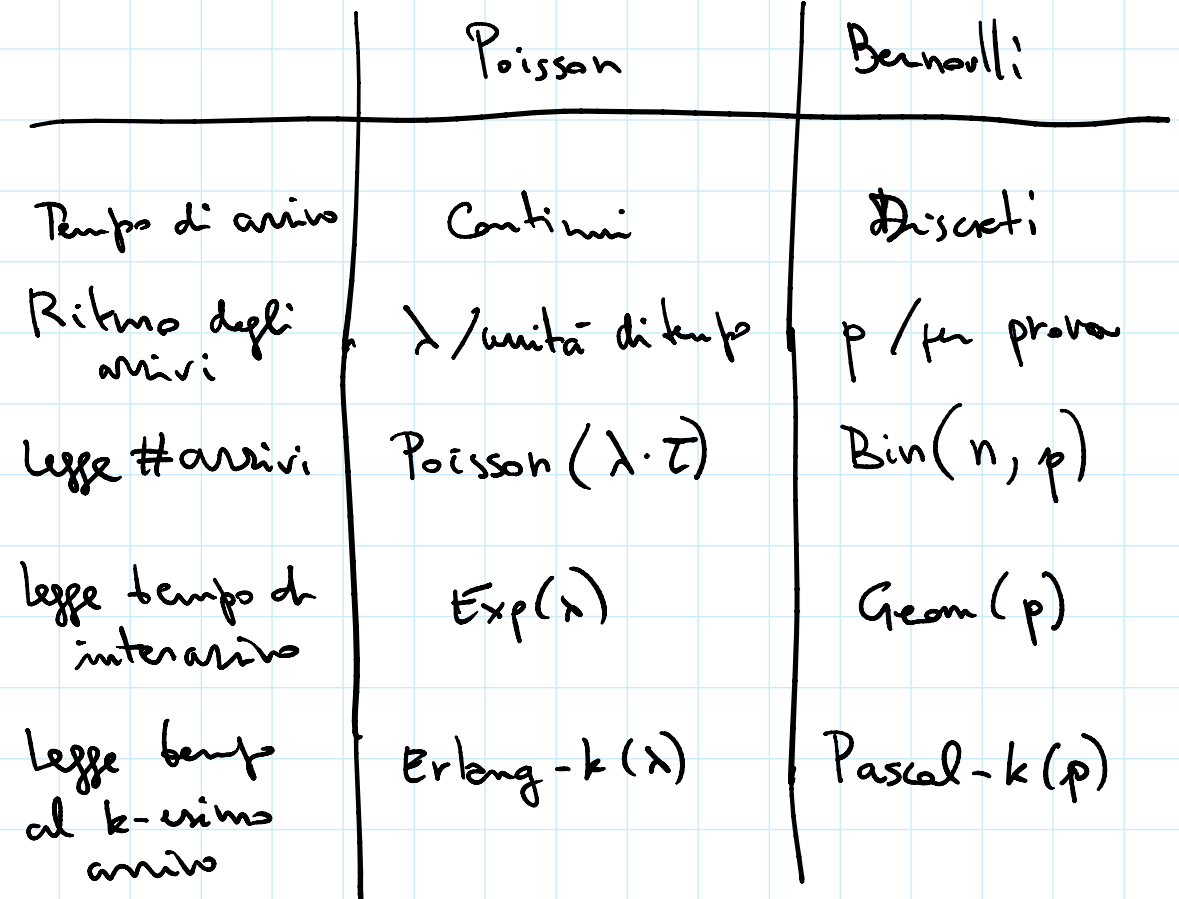 Poisson Bernoulli
Tempo di arrivo Continui Discreti
Ritmo degli
arrivi λ/unità di tempo p /per prova
Legge #arrivi Poisson (λ·τ) Bin(n, p)
Legge tempo di
interarrivo Exp(λ) Geom(p)
Legge tempo Erlang-k(λ) Pascal-k(p)
al k-esimo
arrivo